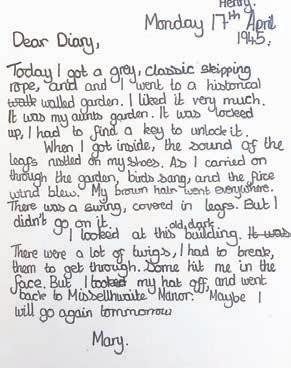 Henry.
Monday 17th April
1945.
Dear Diary,
Today I got a grey, classic skipping
rope, and and I went to a historical
walk walled garden. I liked it very much.
It was my aunts garden. It was locked
up, I had to find a key to unlock it.
When I got inside, the sound of the
leafs rustled on my shoes. As I carried on
through the garden, birds sang, and the
wind blew. My brown hair went everywhere.
There was a swing, covered in leafs. But I
didn't go on it.
I looked at this old, dark building. It was
There were a lot of twigs, I had to break,
them to get through. Some hit me in the
face. But I tooked my hat off, and went
back to Missellhwaite Manor. Maybe I
will go again tommorrow
Mary.